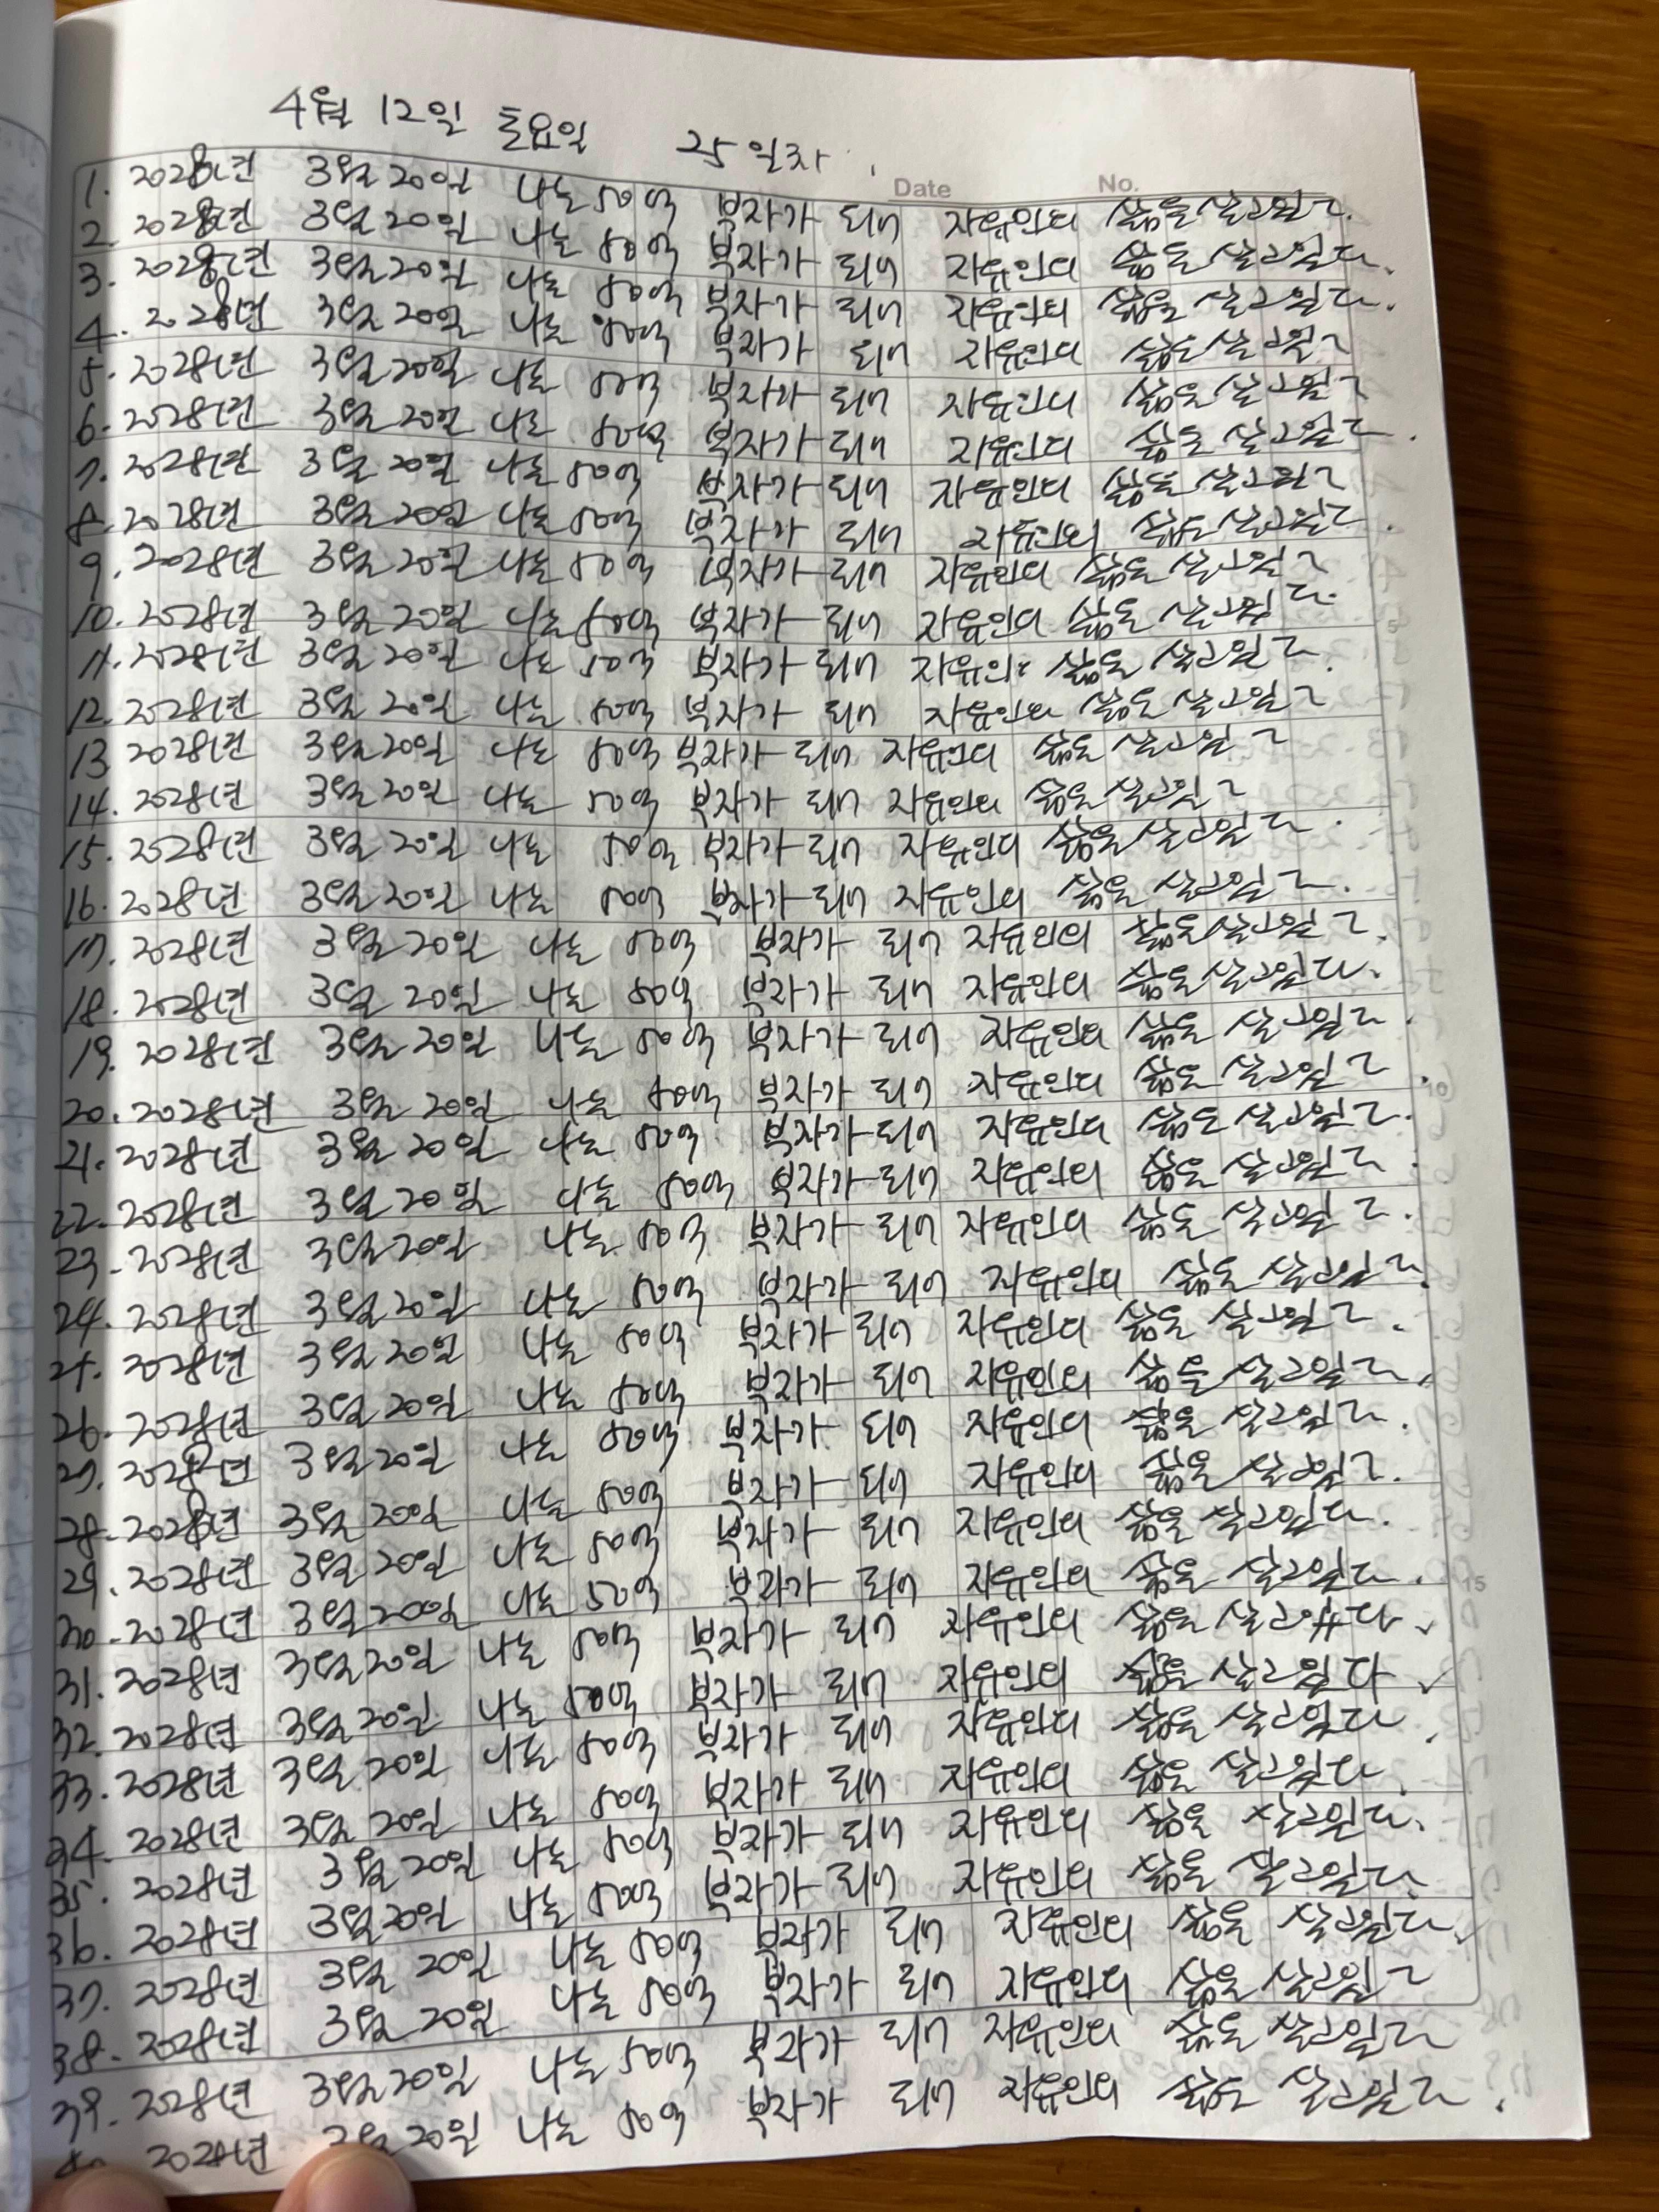 4월 12일 토요일 25일차.
Date No.
1. 2028년 3월 20일 나는 50억 부자가 되어 자유인의 삶을 살고있다.
2. 2028년 3월 20일 나는 50억 부자가 되어 자유인의 삶을 살고있다.
3. 2028년 3월 20일 나는 50억 부자가 되어 자유인의 삶을 살고있다.
4. 2028년 3월 20일 나는 50억 부자가 되어 자유인의 삶을 살고있다
5. 2028년 3월 20일 나는 50억 부자가 되어 자유인의 삶을 살고있다
6. 2028년 3월 20일 나는 50억 부자가 되어 자유인의 삶을 살고있다.
7. 2028년 3월 20일 나는 50억 부자가 되어 자유인의 삶을 살고있다
8. 2028년 3월 20일 나는 50억 부자가 되어 자유인의 삶을 살고있다.
9. 2028년 3월 20일 나는 50억 부자가 되어 자유인의 삶을 살고있다
10. 2028년 3월 20일 나는 50억 부자가 되어 자유인의 삶을 살고있다.
11. 2028년 3월 20일 나는 50억 부자가 되어 자유인의 삶을 살고있다.
12. 2028년 3월 20일 나는 50억 부자가 되어 자유인의 삶을 살고있다
13 2028년 3월 20일 나는 50억 부자가 되어 자유인의 삶을 살고있다
14. 2028년 3월 20일 나는 50억 부자가 되어 자유인의 삶을 살고있다
15. 2028년 3월 20일 나는 50억 부자가 되어 자유인의 삶을 살고있다.
16. 2028년 3월 20일 나는 50억 부자가 되어 자유인의 삶을 살고있다.
17. 2028년 3월 20일 나는 50억 부자가 되어 자유인의 삶을 살고있다.
18. 2028년 3월 20일 나는 50억 부자가 되어 자유인의 삶을 살고있다.
19. 2028년 3월 20일 나는 50억 부자가 되어 자유인의 삶을 살고있다.
20. 2028년 3월 20일 나는 50억 부자가 되어 자유인의 삶을 살고있다.
21. 2028년 3월 20일 나는 50억 부자가 되어 자유인의 삶을 살고있다.
22. 2028년 3월 20일 나는 50억 부자가 되어 자유인의 삶을 살고있다.
23. 2028년 3월 20일 나는 50억 부자가 되어 자유인의 삶을 살고있다.
24. 2028년 3월 20일 나는 50억 부자가 되어 자유인의 삶을 살고있다.
25. 2028년 3월 20일 나는 50억 부자가 되어 자유인의 삶을 살고있다.
26. 2028년 3월 20일 나는 50억 부자가 되어 자유인의 삶을 살고있다.
27. 2028년 3월 20일 나는 50억 부자가 되어 자유인의 삶을 살고있다.
28. 2028년 3월 20일 나는 50억 부자가 되어 자유인의 삶을 살고있다.
29. 2028년 3월 20일 나는 50억 부자가 되어 자유인의 삶을 살고있다.
30. 2028년 3월 20일 나는 50억 부자가 되어 자유인의 삶을 살고있다.
31. 2028년 3월 20일 나는 50억 부자가 되어 자유인의 삶을 살고있다.
32. 2028년 3월 20일 나는 50억 부자가 되어 자유인의 삶을 살고있다.
33. 2028년 3월 20일 나는 50억 부자가 되어 자유인의 삶을 살고있다.
34. 2028년 3월 20일 나는 50억 부자가 되어 자유인의 삶을 살고있다.
35. 2028년 3월 20일 나는 50억 부자가 되어 자유인의 삶을 살고있다.
36. 2028년 3월 20일 나는 50억 부자가 되어 자유인의 삶을 살고있다.
37. 2028년 3월 20일 나는 50억 부자가 되어 자유인의 삶을 살고있다.
38. 2028년 3월 20일 나는 50억 부자가 되어 자유인의 삶을 살고있다
39. 2028년 3월 20일 나는 50억 부자가 되어 자유인의 삶을 살고있다
40 2028년 3월 20일 나는 50억 부자가 되어 자유인의 삶을 살고있다.
5
10
15